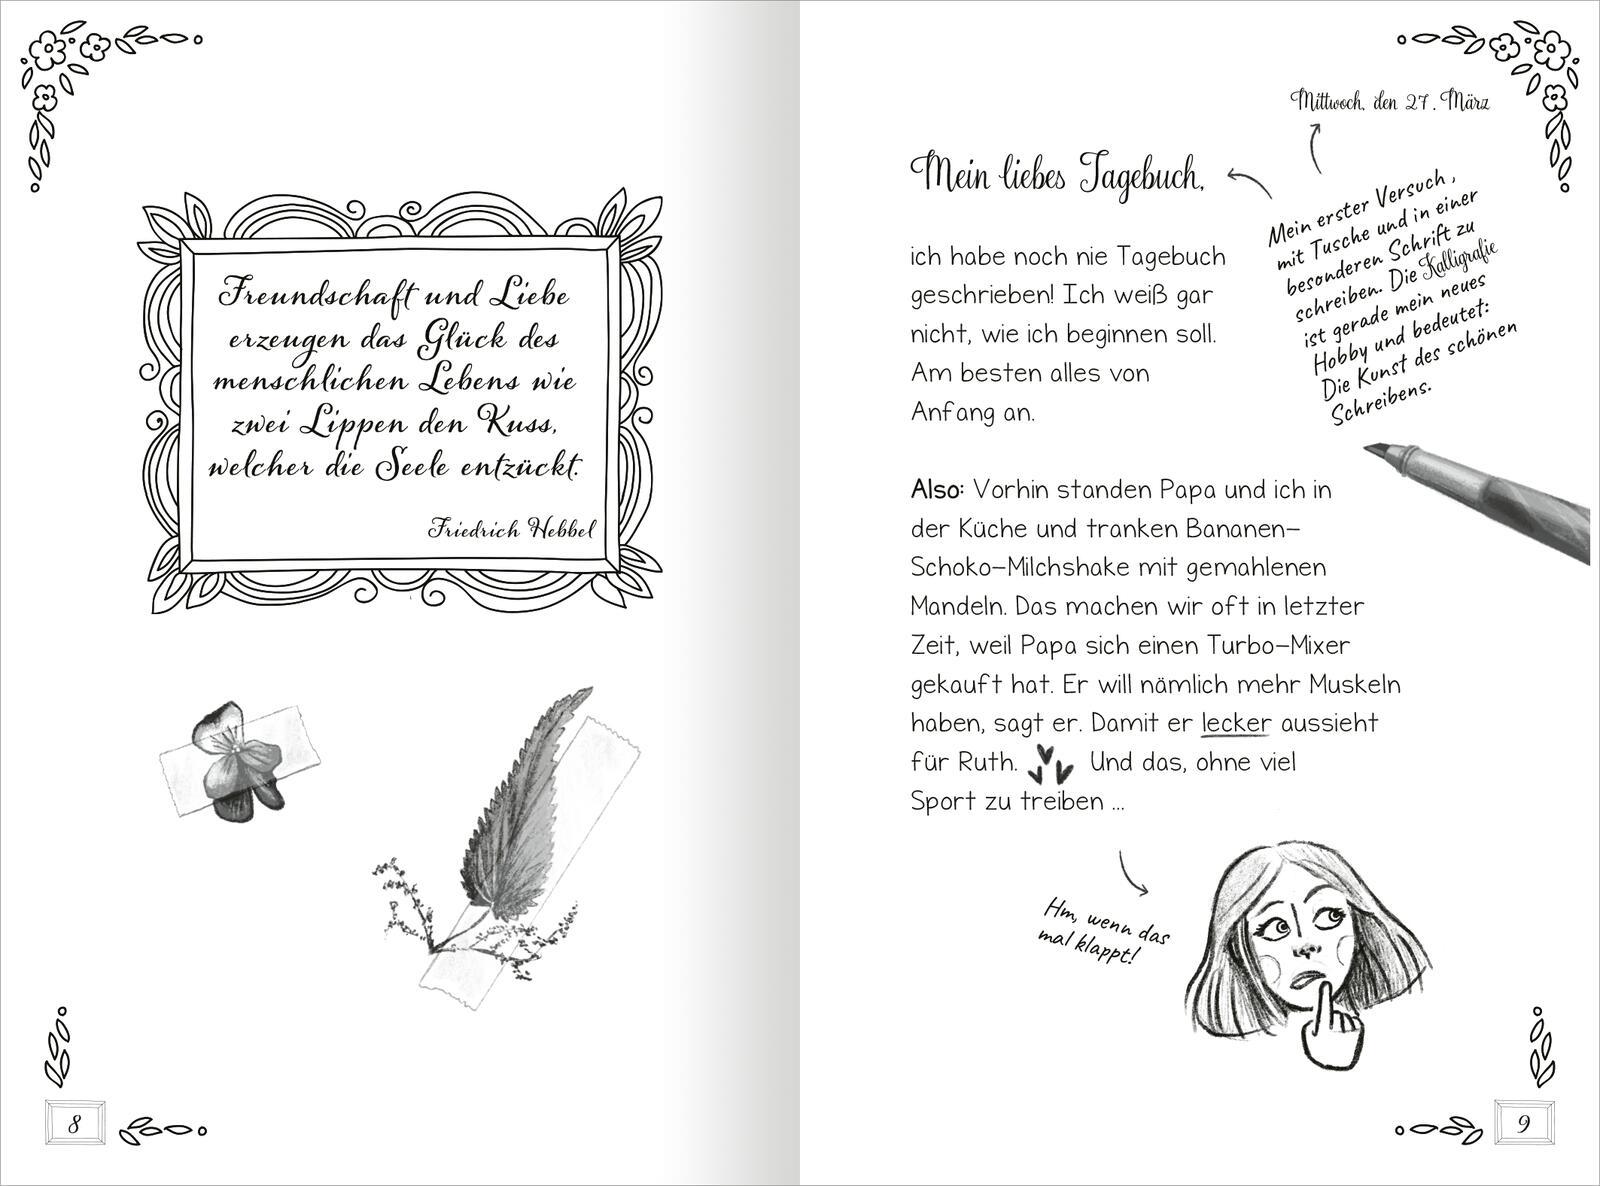 Freundschaft und Liebe
erzeugen das Glück des
menschlichen Lebens wie
zwei Lippen den Kuss,
welcher die Seele entzückt.
Friedrich Hebbel
8
Mittwoch, den 27. März
Mein liebes Tagebuch,
Mein erster Versuch,
mit Tusche und in einer
besonderen Schrift zu
schreiben. Die Kalligrafie
ist gerade mein neues
Hobby und bedeutet:
Die Kunst des schönen
Schreibens.
ich habe noch nie Tagebuch
geschrieben! Ich weiß gar
nicht, wie ich beginnen soll.
Am besten alles von
Anfang an.
Also: Vorhin standen Papa und ich in
der Küche und tranken Bananen-
Schoko-Milchshake mit gemahlenen
Mandeln. Das machen wir oft in letzter
Zeit, weil Papa sich einen Turbo-Mixer
gekauft hat. Er will nämlich mehr Muskeln
haben, sagt er. Damit er lecker aussieht
für Ruth. Und das, ohne viel
Sport zu treiben ...
Hm, wenn das
mal klappt!
9